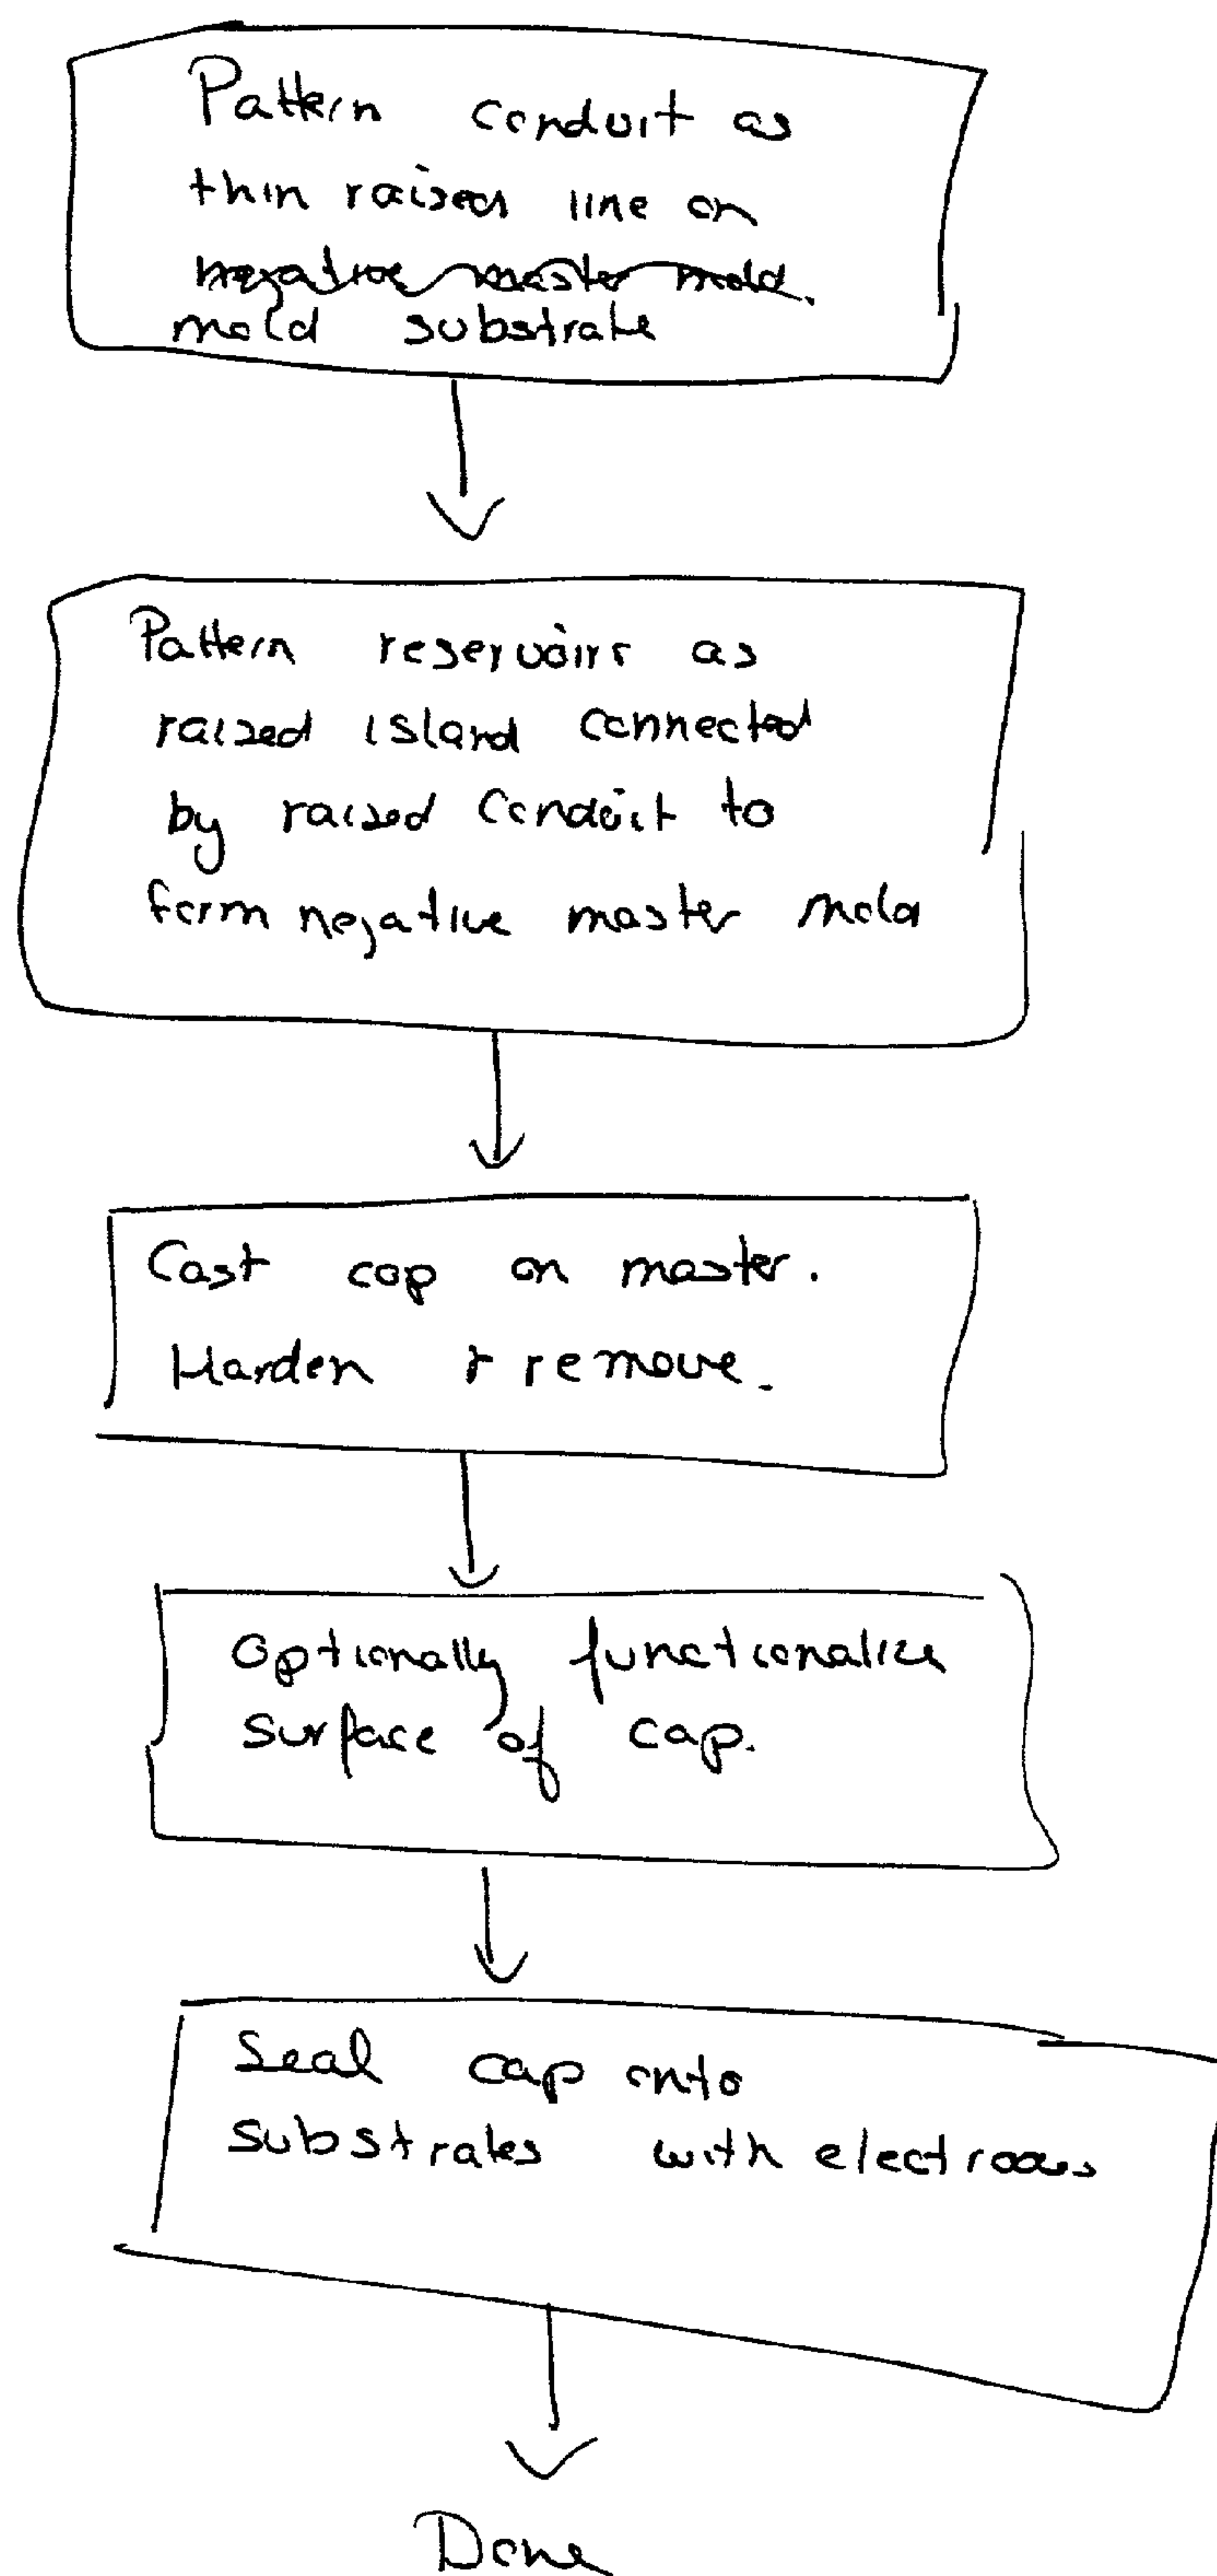 Pattern conduit as
thin raised line on
negative master mold.
mold substrate
Pattern reservoirs as
raised island connected
by raised conduit to
form negative master mold
Cast cap on master.
Harden & remove.
Optionally functionalize
surface of cap.
Seal cap onto
substrates with electrodes
Done